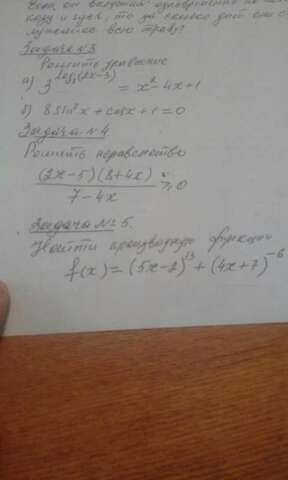 козу и гуся, то за сколько дней они с
Задача №3
Решите уравнение
а) 3^log₃(2x-3) = x² - 4x + 1
б) 8 sin²x + cosx + 1 = 0
Задача №4
Решить неравенство
(2x-5)(8+4x)
7-4x
≥0
Задача №5.
Найти производную функции
f(x) = (5x-2)¹³ + (4x+7)⁻⁶